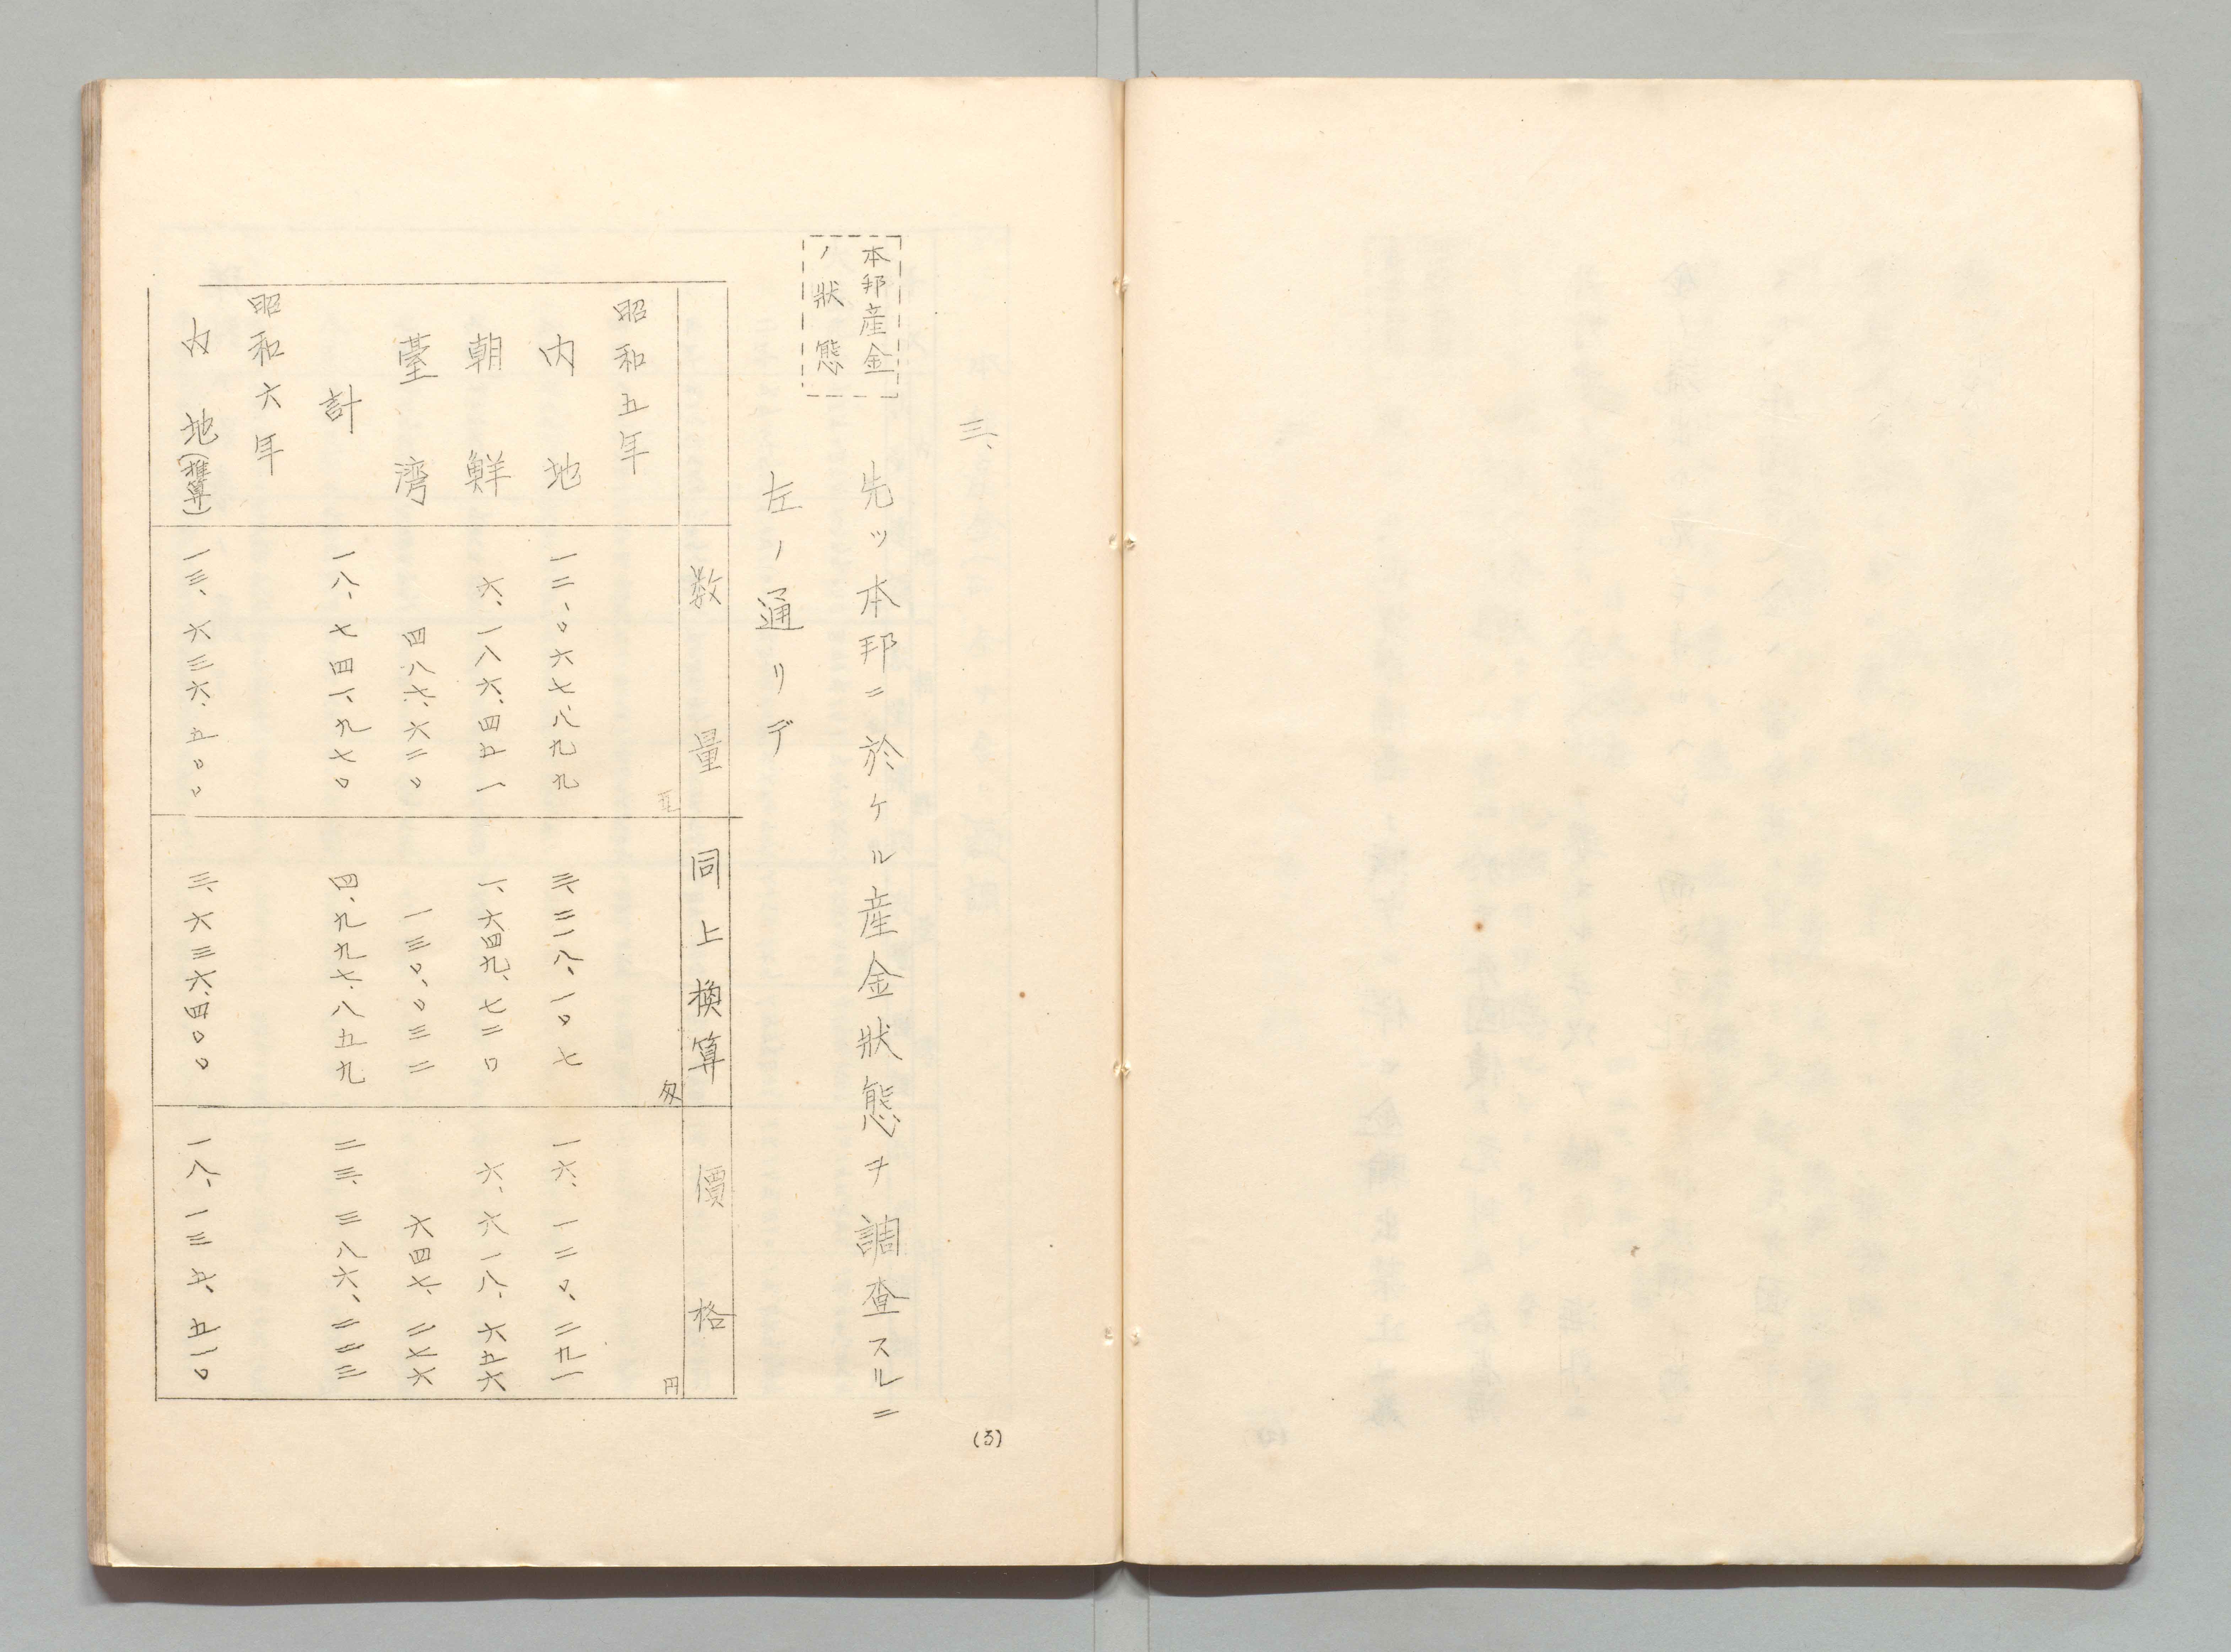 三、
本邦産金
ノ狀態
先ッ本邦ニ於ケル産金狀態ヲ調査スルニ
左ノ通リデ
数量 同上換算 價格
昭和五年 瓦 匁 円
内地 一二、〇六七、八九九 三、二一八、一〇七 一六、一二〇、二九一
朝鮮 六、一八六、四五一 一、六四九、七二〇 六、六一八、六五六
臺湾 四八七、六二〇 一三〇、〇三二 六四七、二七六
計 一八、七四一、九七〇 四、九九七、八五九 二三、三八六、二二三
昭和六年
内地(推算) 一三、六三六、五〇〇 三、六三六、四〇〇 一八、一三五、五一〇
(5)